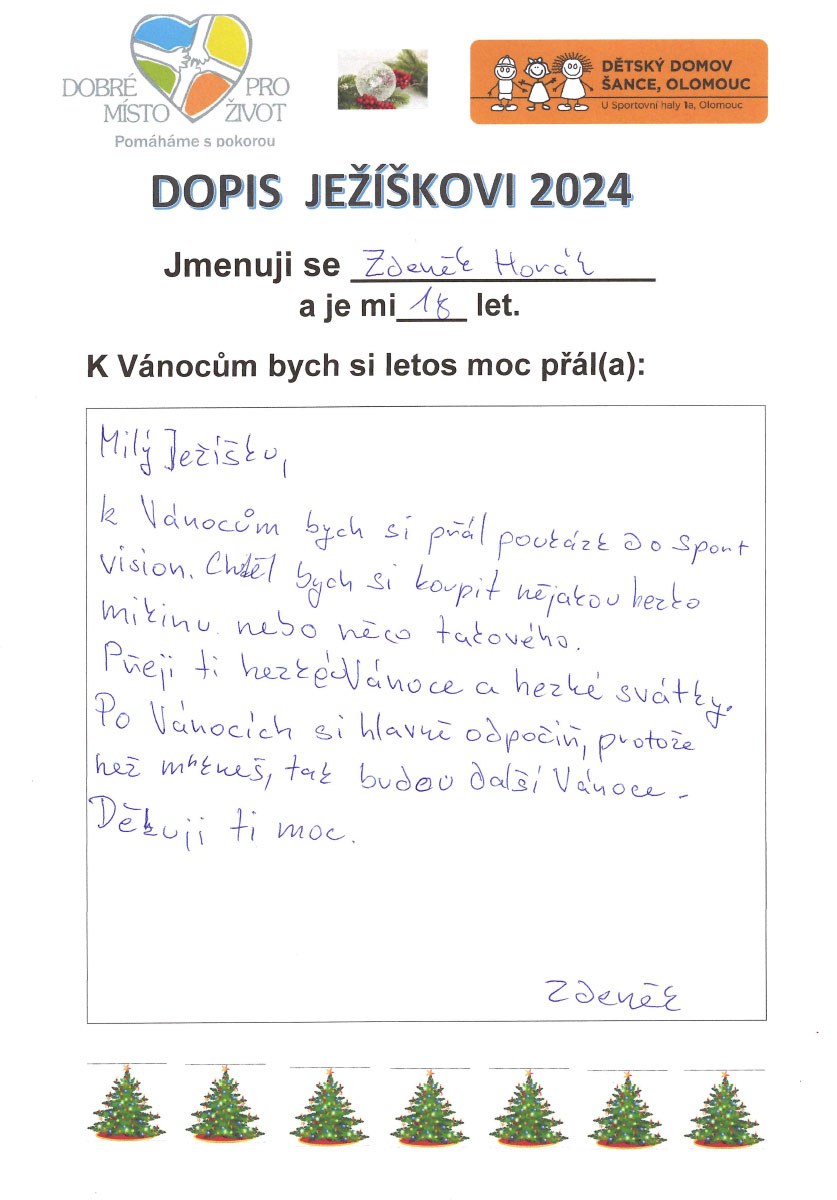 DOBRÉ PRO
MÍSTO ŽIVOT
Pomáháme s pokorou
DĚTSKÝ DOMOV
ŠANCE, OLOMOUC
U Sportovní haly 1a, Olomouc
DOPIS JEŽÍŠKOVI 2024
Jmenuji se Zdeněk Horák
a je mi 18 let.
K Vánocům bych si letos moc přál(a):
Milý Ježíšku,
k Vánocům bych si přál poukázk do Sport
vision. Chtěl bych si koupit nějakou hezko
mikinu nebo něco takového.
Přeji ti hezké Vánoce a hezké svátky.
Po Vánocích si hlavně odpočiň, protože
než mrkneš, tak budou další Vánoce.
Děkuji ti moc.
Zdeněk